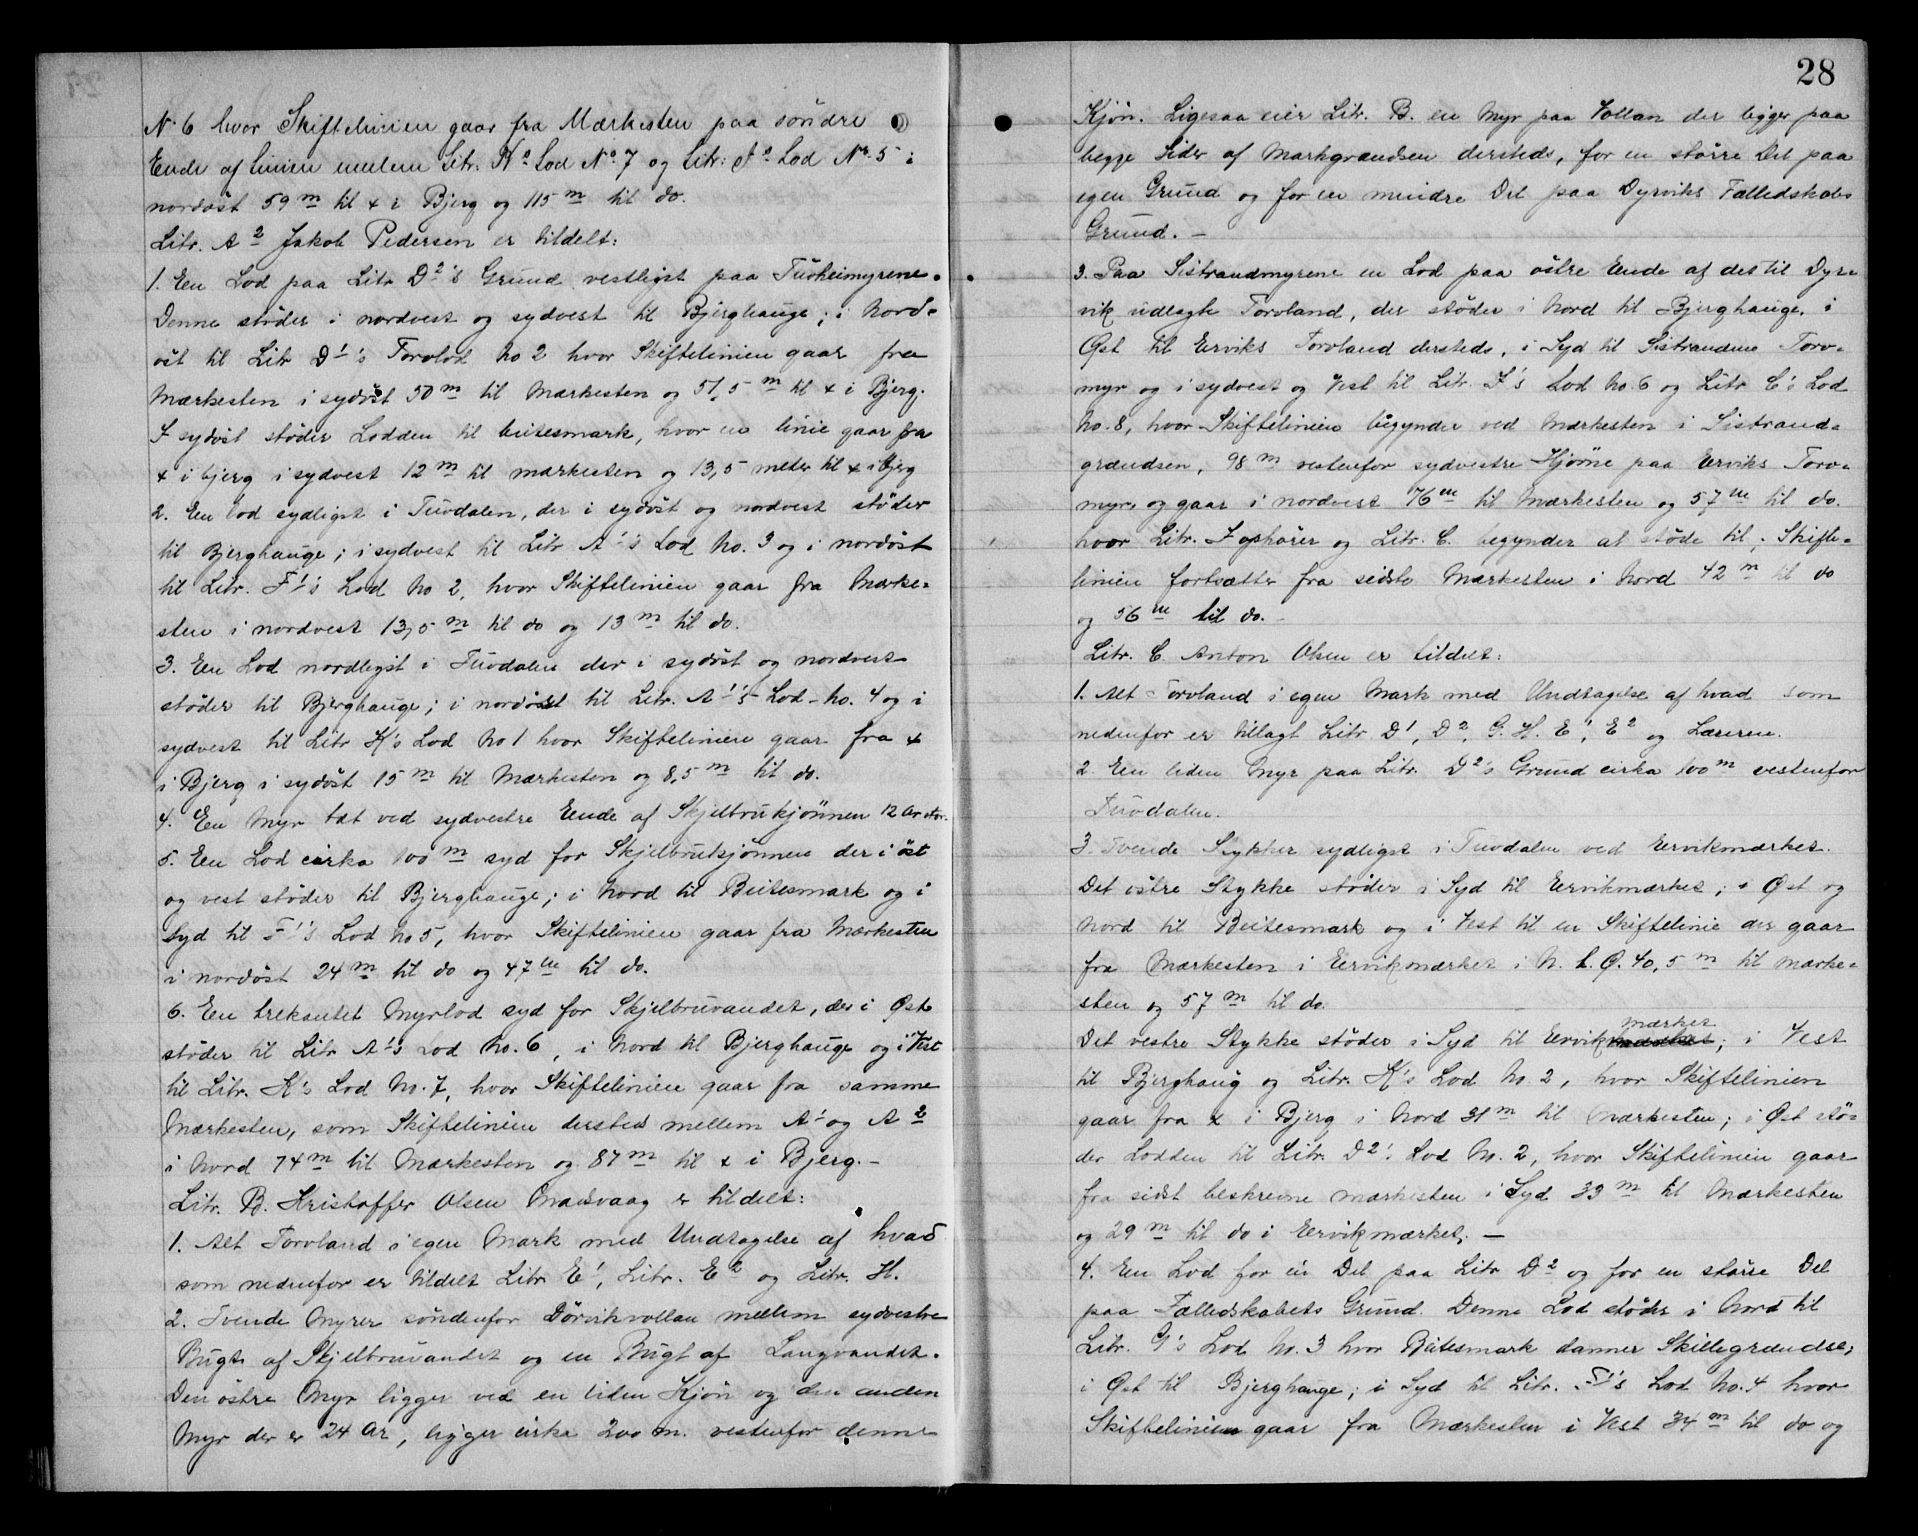 No 6 hvor Skiftelinien gaar fra Mærkesten paa söndre
Ende af linien mellem Litr. K's Lod No 7 og Litr. Lod No 5 i
nordöst 59 m til x i Bjerg og 115 m til do.
Litr. A2 Jakob Pedersen er tildelt:
1. Een Lod paa Litr D2's Grund vestligst paa Tuvheimyrene.
Denne stöder i nordvest og sydvest til Bjerghauge; i Nord-
öst til Litr D1's Torvlod No 2 hvor Skiftelinien gaar fra
Mærkesten i sydöst 50 m til Mærkesten og 51,5 m til x i Bjerg.
I sydöst stöder Lodden til beitesmark, hvor en linie gaar fra
x i bjerg i sydvest 12 m til mærkesten og 13,5 meter til x i Bjerg
2. Een Lod sydligst i Tuvdalen, der i sydöst og nordvest stöder
til Bjerghauge; i sydvest til Litr A1's Lod No. 3 og i nordöst
til Litr. F1's Lod No 2, hvor Skiftelinien gaar fra Mærke-
sten i nordvest 13,5 m til do og 13 m til do.
3. Een Lod nordligst i Tuvdalen der i sydöst og nordvest
stöder til Bjerghauge; i nordöst til Litr. A1's Lod No. 4 og i
sydvest til Litr K's Lod No 1 hvor Skiftelinien gaar fra x
i Bjerg i sydöst 15 m til Mærkesten og 8,5 m til do.
4. Een Myr tæt ved sydvestre Ende af Skjelbrukjönnen 12 Ar stor.
5. Een Lod cirka 100 m syd for Skjelbrutjönnen der i öst
og vest stöder til Bjerghauge; i Nord til Beitesmark og i
Syd til F1's Lod No 5, hvor Skiftelinien gaar fra Mærkesten
i nordöst 24 m til do og 47 m til do.
6. Een trekantet Myrlod syd for Skjelbruvandet, der i Öst
stöder til Litr A1's Lod No. 6, i Nord til Bjerghauge og i Vest
til Litr. K's Lod No. 7, hvor Skiftelinien gaar fra samme
Mærkesten, som Skiftelinien dersteds mellem A1 og A2
i Nord 74 m til Mærkesten og 87 m til x i Bjerg. —
Litr. B. Kristoffer Olsen Madsvaag er tildelt:
1. Alt Torvland i egen Mark med Undtagelse af hvad
som nedenfor er tildelt Litr E1, Litr. E2 og Litr. H.
2. Tvende Myrer söndenfor Dörvikvollan mellem sydvestre
Bugt af Skjelbruvandet og en Bugt af Langvandet.
Den östre Myr ligger ved en liden Kjön og den anden
Myr der er 24 Ar, ligger cirka 200 m. vestenfor denne
28
Kjön. Ligesaa eier Litr. B. en Myr paa Vollan der ligger paa
begge Sider af Markgrændsen dersteds, for en större Del paa
egen Grund og for en mindre Del paa Dyrviks Fælledskabs
Grund. —
3. Paa Sistrandmyrene en Lod paa östre Ende af det til Dyr-
vik udlagte Torvland, der stöder i Nord til Bjerghauge, i
Öst til Erviks Torvland dersteds, i Syd til Sistrandens Torv-
myr og i sydvest og Vest til Litr. I's Lod No 6 og Litr C's Lod
No. 8, hvor Skiftelinien begynder ved Mærkesten i Sistrand-
grændsen, 98 m vestenfor sydvestre Hjörne paa Erviks Torv-
myr, og gaar i nordvest 76 m til Mærkesten og 57 m til do.
hvor Litr. I ophörer og Litr. C. begynder at stöde til; Skifte-
linien fortsætter fra sidste Mærkesten i Nord 42 m til do
og 56 m til do. —
Litr. C. Anton Olsen er tildelt:
1. Alt Torvland i egen Mark med Undtagelse af hvad som
nedenfor er tillagt Litr D1, D2, G. H. E1, E2 og Læreren.
2. Een liden Myr paa Litr. D2's Grund cirka 100 m vestenfor
Tuvdalen.
3. Tvende Stykker sydligst i Tuvdalen ved Ervikmærket.
Det östre Stykke stöder i Syd til Ervikmærket; i Öst og
Nord til Beitesmark og i Vest til en Skiftelinie der gaar
fra Mærkesten i Ervikmærket i N. t. Ö. 40,5 m til mærke-
sten og 57 m til do.
Det vestre Stykke stöder i Syd til Ervikmærket; i Vest
til Bjerghaug og Litr. K's Lod No. 2, hvor Skiftelinien
gaar fra x i Bjerg i Nord 31 m til Mærkesten; i Öst stö-
der Lodden til Litr. D2's Lod No. 2, hvor Skiftelinien gaar
fra sidst beskrevne mærkesten i Syd 33 m til Mærkesten
og 29 m til do i Ervikmærket. —
4. Een Lod for en Del paa Litr D2 og for en större Del
paa Fælledskabets Grund. Denne Lod stöder i Nord til
Litr. G's Lod No. 3 hvor Beitesmark danner Skillegrændse;
i Öst til Bjerghauge; i Syd til Litr. F1's Lod No. 4 hvor
Skiftelinien gaar fra Mærkesten i Vest 34 m til do og